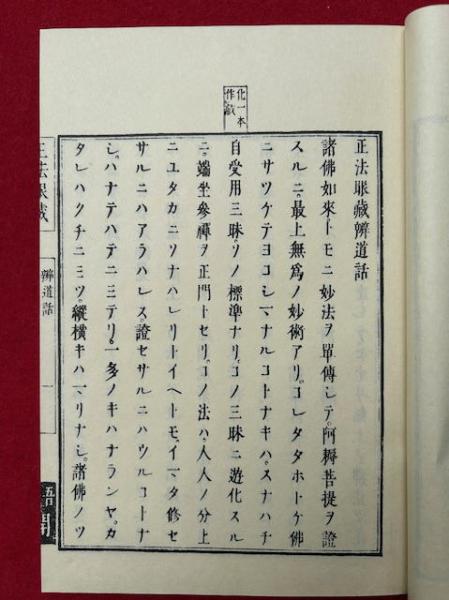 化一本
作戲
正法眼藏辨道話
諸佛如來トモニ妙法ヲ單傳シテ。阿耨菩提ヲ證
スルニ。最上無爲ノ妙術アリ。コレタタホトケ佛
ニサツケテヨコシマナルコトナキハ。スナハチ
自受用三昧。ソノ標準ナリ。コノ三昧ニ遊化スル
ニ。端坐參禪ヲ正門トセリ。コノ法ハ。人人ノ分上
ニユタカニソナハレリトイヘトモ。イマタ修セ
サルニハアラハレス。證セサルニハウルコトナ
シ。ハナテハテニミテリ。一多ノキハナランヤ。カ
タレハクチニミツ。縱橫キハマリナシ。諸佛ノツ
正法眼藏
辨道話
一